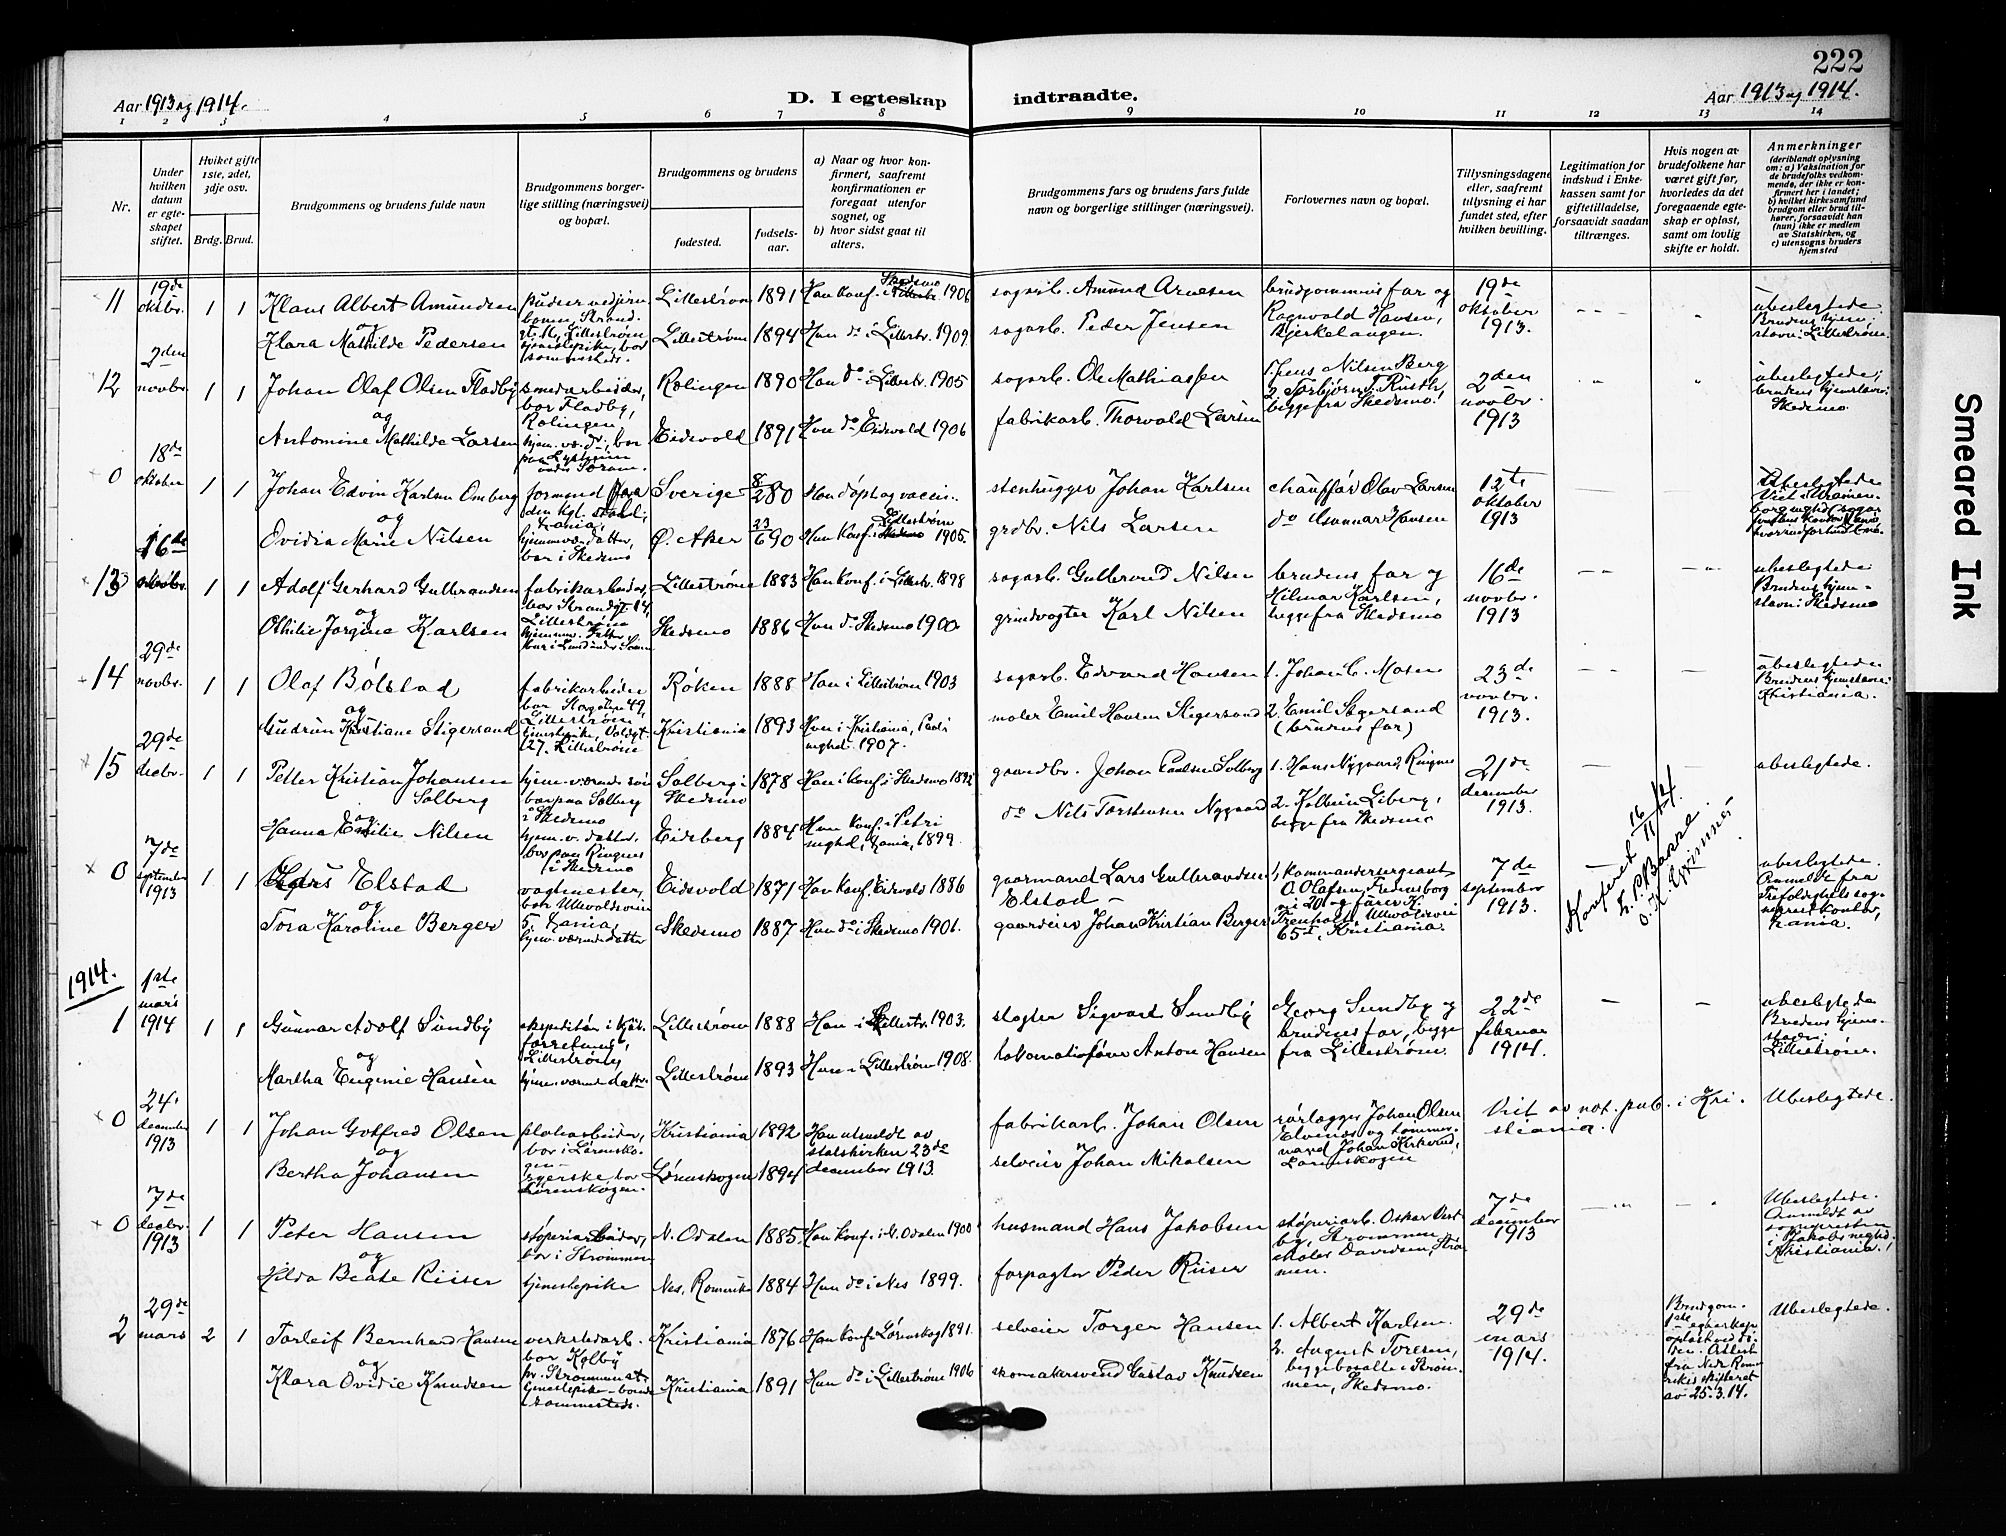 222
Aar 1913 og 1914.
D. I egteskap
indtraadte.
Aar 1913 og 1914.
1 2 3 4 5 6 7 8 9 10 11 12 13 14
Nr.
Under
hvilken
datum
er egte-
skapet
stiftet.
Hvilket gifte
1ste, 2det,
3dje osv.
Brdg. Brud.
Brudgommens og brudens fulde navn
Brudgommens borger-
lige stilling (næringsvei)
og bopæl.
Brudgommens og brudens
fødested.
fødsels-
aar.
a) Naar og hvor kon-
firmert, saafremt
konfirmationen er
foregaat utenfor
sognet, og
b) hvor sidst gaat til
alters.
Brudgommens fars og brudens fars fulde
navn og borgerlige stillinger (næringsvei).
Forlovernes navn og bopæl.
Tillysningsdagene
eller, saafremt
tillysning ei har
fundet sted, efter
hvilken bevilling.
Legitimation for
indskud i Enke-
kassen samt for
giftetilladelse,
forsaavidt saadan
tiltrænges.
Hvis nogen av
brudefolkene har
været gift før,
hvorledes da det
foregaaende egte-
skap er opløst,
samt om lovlig
skifte er holdt.
Anmerkninger
(deriblandt oplysning
om: a) Vaksination for
de brudefolks vedkom-
mende, der ikke er kon-
firmert her i landet;
b) hvilket kirkesamfund
brudgom eller brud til-
hører, forsaavidt han
(hun) ikke er medlem
av Statskirken, og
c) utensogns bruders
hjemsted
11 19de oktbr. 1 1 Klaus Albert Amundsen
Lillestrøm 1891 Han konf. i Skedsmo 1906
sagarb. Amund Arnesen
brudgommens far og
Ragnvald Hansen,
Bjerkelangen.
19de
oktober
1913.
ubeslegtede.
Brudens hjem-
stavn: Lillestrøm.
og
Klara Mathilde Pedersen
Lillestrøm 1894 Hun do i Lillestr. 1909
sagarb. Peder Jensen
12 2den novbr. 1 1 Johan Olaf Olsen Fladby
smedarbeider,
bor Fladby,
Rælingen,
Rælingen 1890 Han do i Lillestr. 1905
sagarb. Ole Mathiassen
1. Jens Nilsen Berg
2. Torbjørn T. Rusth,
begge fra Skedsmo.
2den
novbr.
1913
ubeslegtede;
brudens hjemstavn:
Skedsmo
og
Antomine Mathilde Larsen
Eidsvold 1891 Hun do Eidsvold 1906
fabrikarb. Thorvald Larsen
0 18de oktober 1 1 Johan Edvin Karlsen Omberg
Sverige 8/2 80
stenhugger Johan Karlsen
chauffør Olav Larsen
do Gunnar Hansen
12te
oktober
1913
og
Ovidia Marie Nilsen
hjemmevær. datter,
bor i Skedsmo
Ø. Aker 23/6 90 Hun konf. i Lillestrøm 1905.
grdbr. Nils Larsen
13 16de 1 1 Adolf Gerhard Gulbrandsen
fabrikarbeider,
bor Strandgt. 14,
Lillestrøm
Lillestrøm 1883 Han konf. i Lillestr. 1898
sagarb. Gulbrand Nilsen
brudens far og
Hilmar Karlsen,
begge fra Skedsmo
16de
novbr.
1913
ubeslegtede
Brudens hjem-
stavn: Skedsmo
og
Othilie Jorgine Karlsen
Skedsmo 1886 Hun do Skedsmo 1900
grindvogter Karl Nilsen
14 29de novbr. 1 1 Olaf Bølstad
fabrikarbeider
bor Storgaten 49,
Lillestrøm
Røken 1888 Han i Lillestrøm 1903
sagarb. Edvard Hansen
1. Johan C. Mosen
2. Emil Stigersand
(brudens far)
23de
novbr.
1913.
ubeslegtede
Brudens hjemstavn:
Kristiania.
og
Gudrun Kristiane Stigersand
tjenestepike, Voldgt.
27. Lillestrøm
Kristiania 1893 Hun i Kristiania, Pauli
mghd. 1907.
maler Emil Hansen Stigersand
15 29de decbr. 1 1 Petter Kristian Johansen
Solberg
hjem. værende søn
bor paa Solberg
i Skedsmo
Solberg i
Skedsmo
1878 Han konf. i Skedsmo 1892
gaardbr. Johan Paulsen Solberg
1. Hans Nygaard, Ringnes
2. Kolbein Liberg,
begge fra Skedsmo
21de
december
1913.
ubeslegtede.
og
Hanna Emilie Nilsen
hjem. v. datter,
bor paa Ringnes
i Skedsmo
Eidsberg 1884 Hun konf. i Petri
mghd., Xania, 1899.
do Nils Torstensen Nygaard
0 7de september 1913 1 1 Elstad
vognmester,
bor Ullevoldsveien
5, Xania,
Eidsvold 1871 Han konf. Eidsvold 1886
gaarmand Lars Gulbrandsen
Elstad
1. Kommandersergeant
O. Olafsen,
65I, Kristiania.
7de
september
1913.
Konfereret 16/11 14.
ubeslegtede.
Anmeldt fra
Trefoldighets sog-
neprestkontor,
Xania.
og
Tora Karoline Berger
hjem. værende datter
Skedsmo 1887 Hun do i Skedsmo 1901.
gaardeier Johan Kristian Berger
1914.
1 1ste mars 1914 1 1 Gunnar Adolf Sundby
ekspeditør i kjøt-
forretning,
Lillestrøm
Lillestrøm 1888 Han i Lillestr. 1903.
slagter Sigvart Sundby
Georg Sundby og
brudens far, begge
fra Lillestrøm.
22de
februar
1914.
ubeslegtede
Brudens hjem-
stavn:
Lillestrøm.
og
Martha Eugenie Hansen
hjem. værende datter
Lillestrøm 1893 Hun i Lillestrøm 1908.
lokomotivfører Anton Hansen
0 24. december 1913 1 1 Johan Gotfred Olsen
platearbeider,
bor i Lørensko-
gen
Kristiania 1892 Han utmeldt av
statskirken 23de
december 1913.
fabrikarb. Johan Olsen
rørlægger Johan Olsen
Lørenskogen
Viet av not. pub. i Kri-
stiania.
Ubeslegtede.
og
Bertha Johansen
bor
Lørenskogen.
Lørenskogen 1894
selveier Johan Mikalsen
0 7de decbr. 1913 1 1 Peter Hansen
støperiarbeider,
bor i Strømmen
N. Odalen 1885 Han konf. i N. Odalen 1900
husmand Hans Jakobsen
støperiarb. Oskar Vest-
by, Strømmen
Davidsen, Strøm-
men.
7de
december
1913
Ubeslegtede.
Anmeldt av
sognepresten
i Jakobs mghd.
Kristiania.
og
Hilda Beate Riiser
tjenestepike
Nes, Romerike 1884 Hun do i Nes 1899.
forpagter Peder Riiser
2 29de mars 2 1 Torleif Bernhard Hansen
verkstedarb.
bor Kolby
pr. Strømmen st.
Kristiania 1876 Han konf. Lørenskog 1891.
selveier Torger Hansen
1. Albert Karlsen.
2. August Toresen,
begge bosatte i Strøm-
men, Skedsmo.
29de
mars
1914.
Brudgom.
1ste egteskap
opløst ved dø-
den. Attest
fra Nedr. Rome-
rikes skifteret
av 25.3.14.
Ubeslegtede.
og
Klara Ovidie Knudsen
tjenestepike - boende
i sammesteds.
Kristiania 1891 Hun do i Lillestrøm 1906
skomakersvend Gustav Knudsen
Smeared Ink